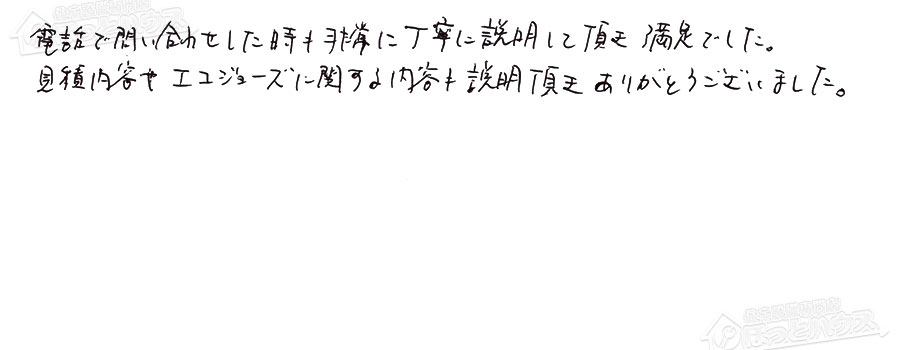 電話で問い合わせした時も非常に丁寧に説明して頂き満足でした。
見積内容やエコジョーズに関する内容も説明頂きありがとうございました。
住宅設備専門店
ほっとハウス